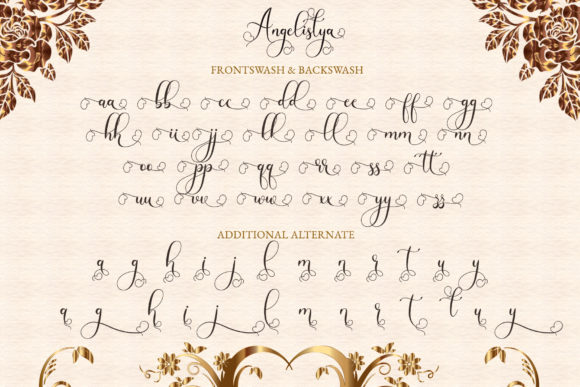 Angelistya
FRONTSWASH & BACKSWASH
aa bb cc dd ee ff gg
hh ii jj kk ll mm nn
oo pp qq rr ss tt
uu vv ww xx yy zz
ADDITIONAL ALTERNATE
a g h i j l m n r t u y
a g h i j l m n r t t u y